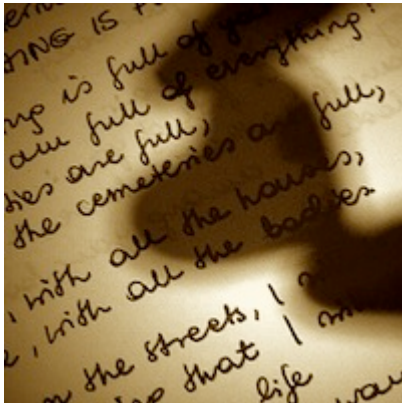 TING IS F
ng is full of you
am full of everything!
ties are full,
the cemeteries are full,
, with all the houses,
e, with all the bodies
n the streets, I
that I
life